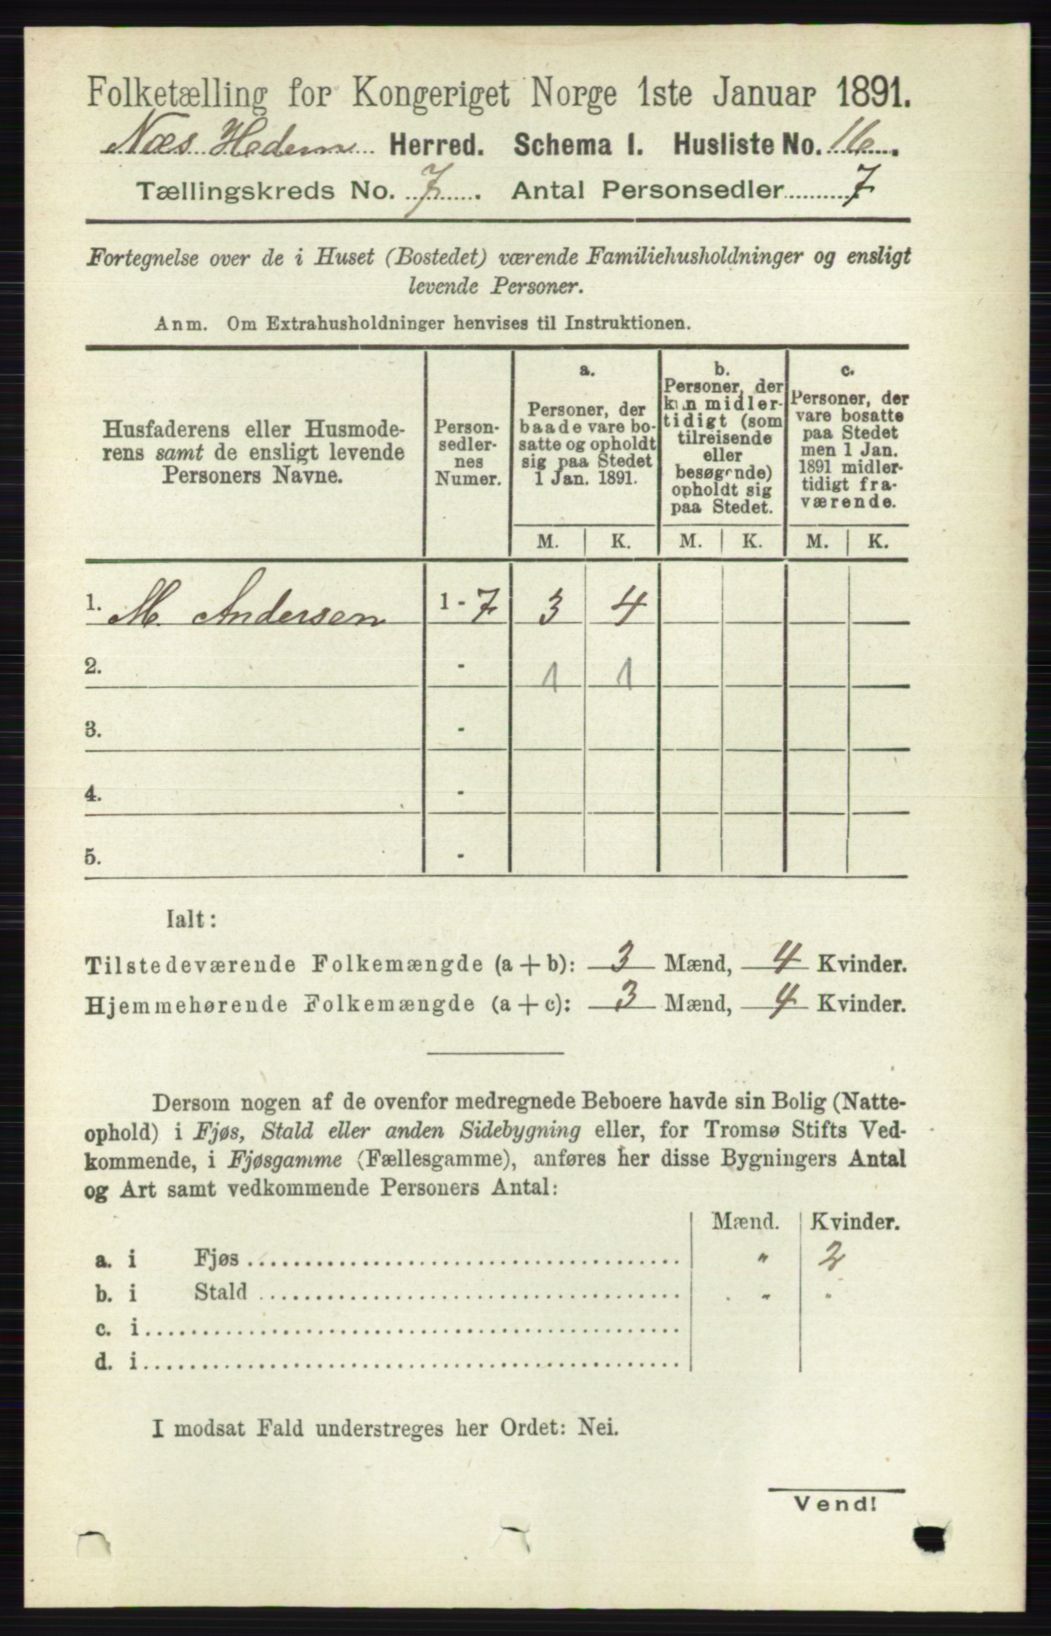 Folketælling for Kongeriget Norge 1ste Januar 1891.
Næs Hedem Herred. Schema I. Husliste No. 16.
Tællingskreds No. 7. Antal Personsedler 7
Fortegnelse over de i Huset (Bostedet) værende Familiehusholdninger og ensligt
levende Personer.
Anm. Om Extrahusholdninger henvises til Instruktionen.
Husfaderens eller Husmode-
rens samt de ensligt levende
Personers Navne.
Person-
sedler-
nes
Numer.
a.
Personer, der
baade vare bo-
satte og opholdt
sig paa Stedet
1 Jan. 1891.
b.
Personer, der
kun midler-
tidigt (som
tilreisende
eller
besøgende)
opholdt sig
paa Stedet.
c.
Personer, der
vare bosatte
paa Stedet
men 1 Jan.
1891 midler-
tidigt fra-
værende.
M. K. M. K. M. K.
1. M. Andersen 1 - 7 3 4
2. - 1 1
3. -
4. -
5. -
Ialt:
Tilstedeværende Folkemængde (a + b): 3 Mænd, 4 Kvinder.
Hjemmehørende Folkemængde (a + c): 3 Mænd, 4 Kvinder.
Dersom nogen af de ovenfor medregnede Beboere havde sin Bolig (Natte-
ophold) i Fjøs, Stald eller anden Sidebygning eller, for Tromsø Stifts Ved-
kommende, i Fjøsgamme (Fællesgamme), anføres her disse Bygningers Antal
og Art samt vedkommende Personers Antal:
Mænd. Kvinder.
a. i Fjøs " 2
b. i Stald " "
c. i
d. i
I modsat Fald understreges her Ordet: Nei.
Vend!